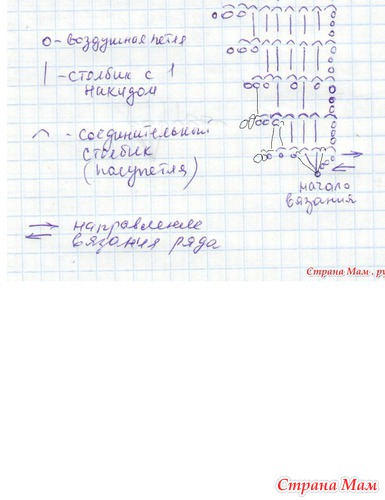 о - воздушная петля
| - столбик с 1
накидом
⌒ - соединительный
столбик
(полупетля)
начало
вязания
направление
вязания ряда
Страна Мам . ру
Страна Мам